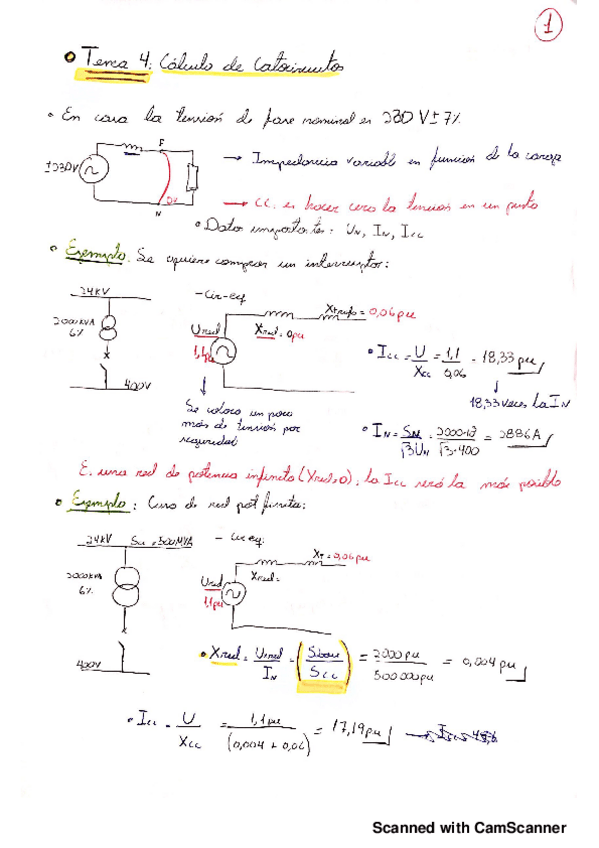 1
• Tema 4: Cálculo de Catocircuitos
• En casa la tensión de fase nominal es 230 V ± 7%
1230V
F
N
0V
→ Impedancia variable en función de la carga
→ CC. es hacer cero la tensión en un punto
• Datos importantes: UN, IN, ICC
• Ejemplo. Se quiere comprar un interruptor:
24KV
2000KVA
6%
400V
- Cir-eq
Ured
1,1pu
Xred = 0pu
Xtrafo = 0,06pu
Se coloca un poco
más de tensión por
seguridad
• Icc = U/Xcc = 1,1/0,06 = 18,33 pu
18,33 veces la IN
• IN = SN/√3UN = 2000·10³/√3·400 = 2886A
E. una red de potencia infinita (Xred=0); la Icc será la más posible
• Ejemplo: Caso de red pot finita:
24KV Scc = 500MVA
2000KVA
6%
400V
- Cir eq:
Ured
1,1pu
Xred =
XT = 0,06pu
• Xred = Ured/IN = (Sbase/Scc) = 2000pu/500000pu = 0,004pu
• Icc = U/Xcc = 1,1pu/(0,004 + 0,06) = 17,19pu
Scanned with CamScanner